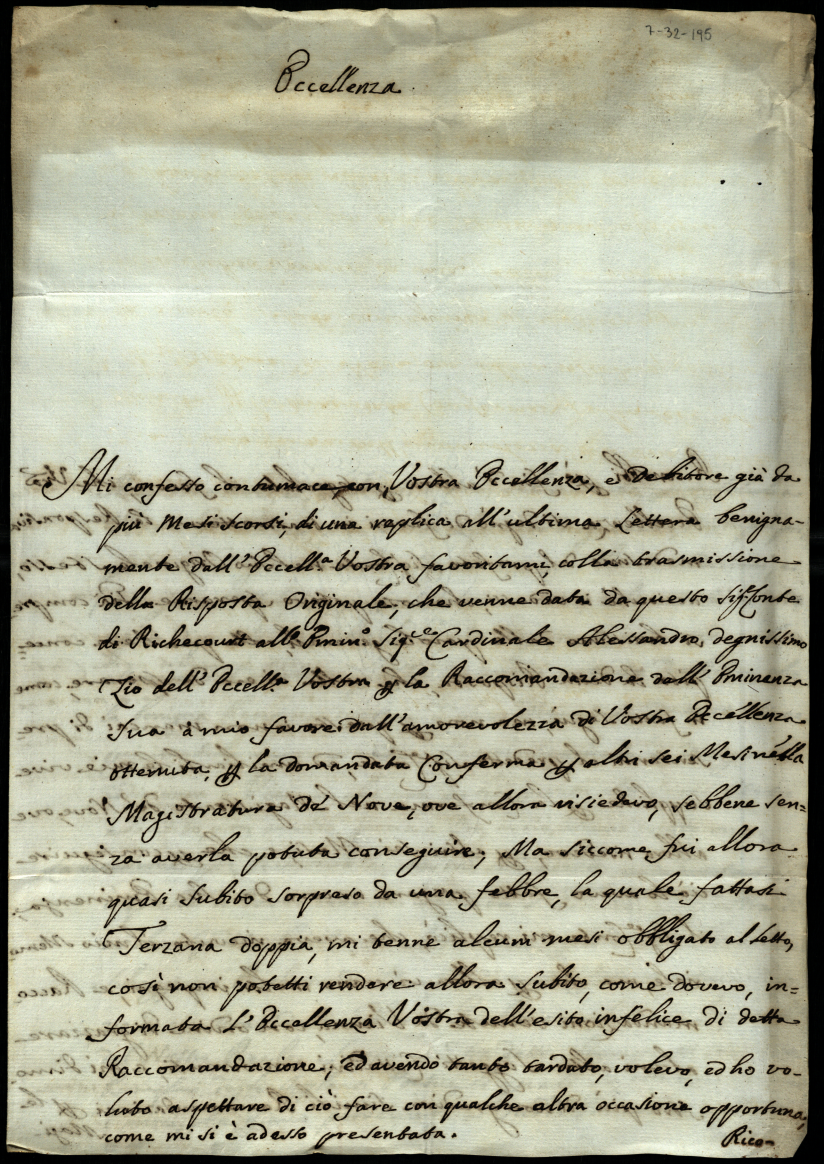 7-32-195
Eccellenza
Mi confesso contumace con Vostra Eccellenza, e debitore già da
più Mesi scorsi, di una replica all'ultima Lettera benigna-
mente dall'Eccell.a Vostra favoritami, colla trasmissione
della Risposta Originale, che venne data da questo Sig.r Conte
di Richecourt all'Emin.o Sig.re Cardinale Alessandro, degnissimo
Zio dell'Eccell.a Vostra p la Raccomandazione dall'Eminenza
Sua à mio favore dall'amorevolezza di Vostra Eccellenza
ottenuta, p la domandata Conferma p altri sei Mesi nella
Magistratura de' Nove, ove allora risiedevo, sebbene sen=
za averla potuta conseguire; Ma siccome fui allora
quasi subito sorpreso da una febbre, la quale fattasi
Terzana doppia, mi tenne alcuni mesi obbligato al Letto,
così non potetti rendere allora subito, come dovevo, in=
formata L'Eccellenza Vostra dell'esito infelice di detta
Raccomandazione; ed avendo tanto tardato, volevo, ed ho vo-
luto aspettare di ciò fare con qualche altra occasione opportuna,
come mi si è adesso presentata.
Rico-